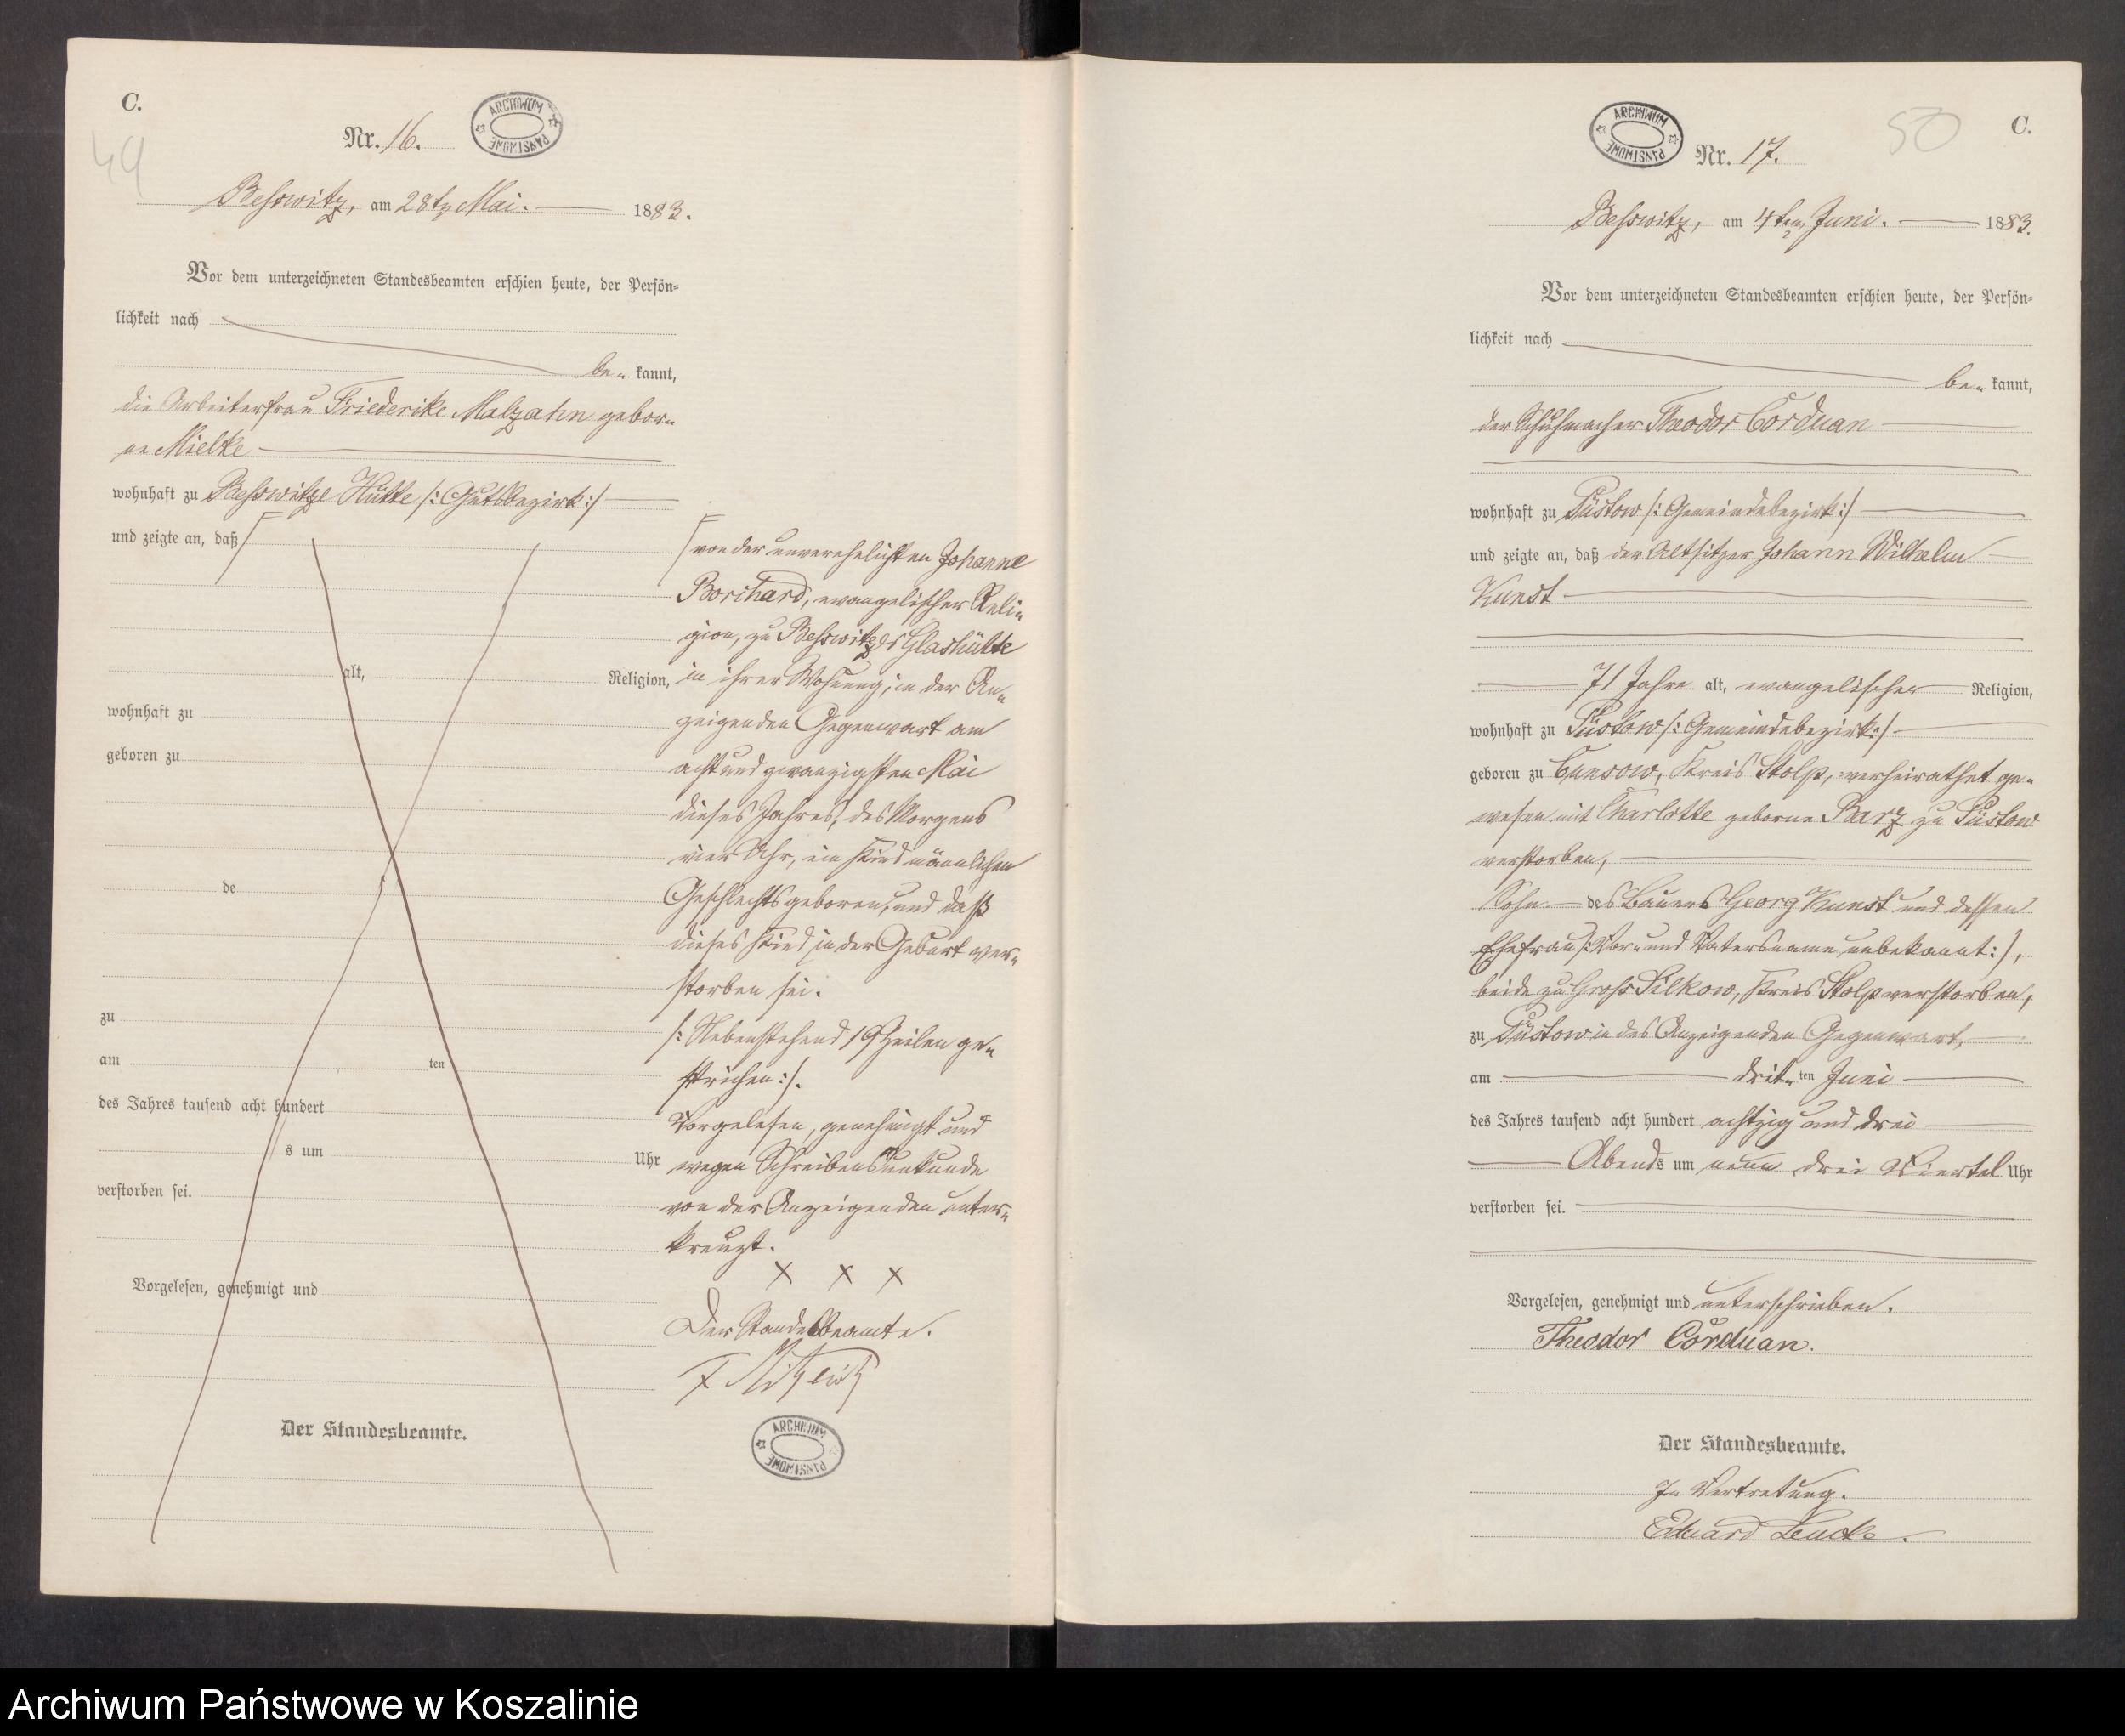 C.
49
Nr. 16.
ARCHIWUM PAŃSTWOWE
Besswitz, am 28ten Mai. 1883.
Vor dem unterzeichneten Standesbeamten erschien heute, der Persön-
lichkeit nach
be- kannt,
die Arbeiterfrau Friederike Malzahn gebor-
ne Mielke
wohnhaft zu Besswitzer Hütte /: Gutsbezirk :/
und zeigte an, daß
alt, Religion,
wohnhaft zu
geboren zu
de
zu
am ten
des Jahres tausend acht hundert
s um Uhr
verstorben sei.
Vorgelesen, genehmigt und
Der Standesbeamte.
von der unverehelichten Johanne
Borchard, evangelischer Reli-
gion, zu Besswitzer Glashütte
in ihrer Wohnung, in der An-
zeigenden Gegenwart am
acht und zwanzigsten Mai
dieses Jahres, des Morgens
vier Uhr, ein Kind männlichen
Geschlechts geboren, und daß
dieses Kind in der Geburt ver-
storben sei.
/: Nebenstehend 19 Zeilen ge-
strichen :/.
Vorgelesen, genehmigt und
wegen Schreibensunkunde
von der Anzeigenden unter-
kreuzt.
X X X
Der Standesbeamte.
ARCHIWUM PAŃSTWOWE
50
C.
ARCHIWUM PAŃSTWOWE
Nr. 17.
Besswitz, am 4ten Juni. 1883.
Vor dem unterzeichneten Standesbeamten erschien heute, der Persön-
lichkeit nach
be- kannt,
der Schuhmacher Theodor Corduan
wohnhaft zu Püstow /: Gemeindebezirk :/
und zeigte an, daß der Altsitzer Johann Wilhelm
Kunst
71 Jahre alt, evangelischer Religion,
wohnhaft zu Püstow /: Gemeindebezirk :/
geboren zu Cunsow, Kreis Stolp, verheirathet ge-
wesen mit Charlotte geborne Barz zu Püstow
verstorben,
Sohn des Bauers Georg Kunst und dessen
Ehefrau /: Vor- und Vatersname unbekannt :/,
beide zu Gross Silkow, Kreis Stolp verstorben,
zu Püstow in des Anzeigenden Gegenwart,
am drit- ten Juni
des Jahres tausend acht hundert achtzig und drei
Abends um neun drei Viertel Uhr
verstorben sei.
Vorgelesen, genehmigt und unterschrieben.
Theodor Corduan.
Der Standesbeamte.
In Vertretung.
Eduard Leucke.
Archiwum Państwowe w Koszalinie